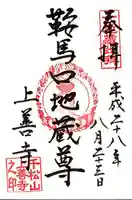 奉拝
平成二十八年
八月二十三日
鞍馬口地蔵尊
上善寺
千松山
善寺
之印